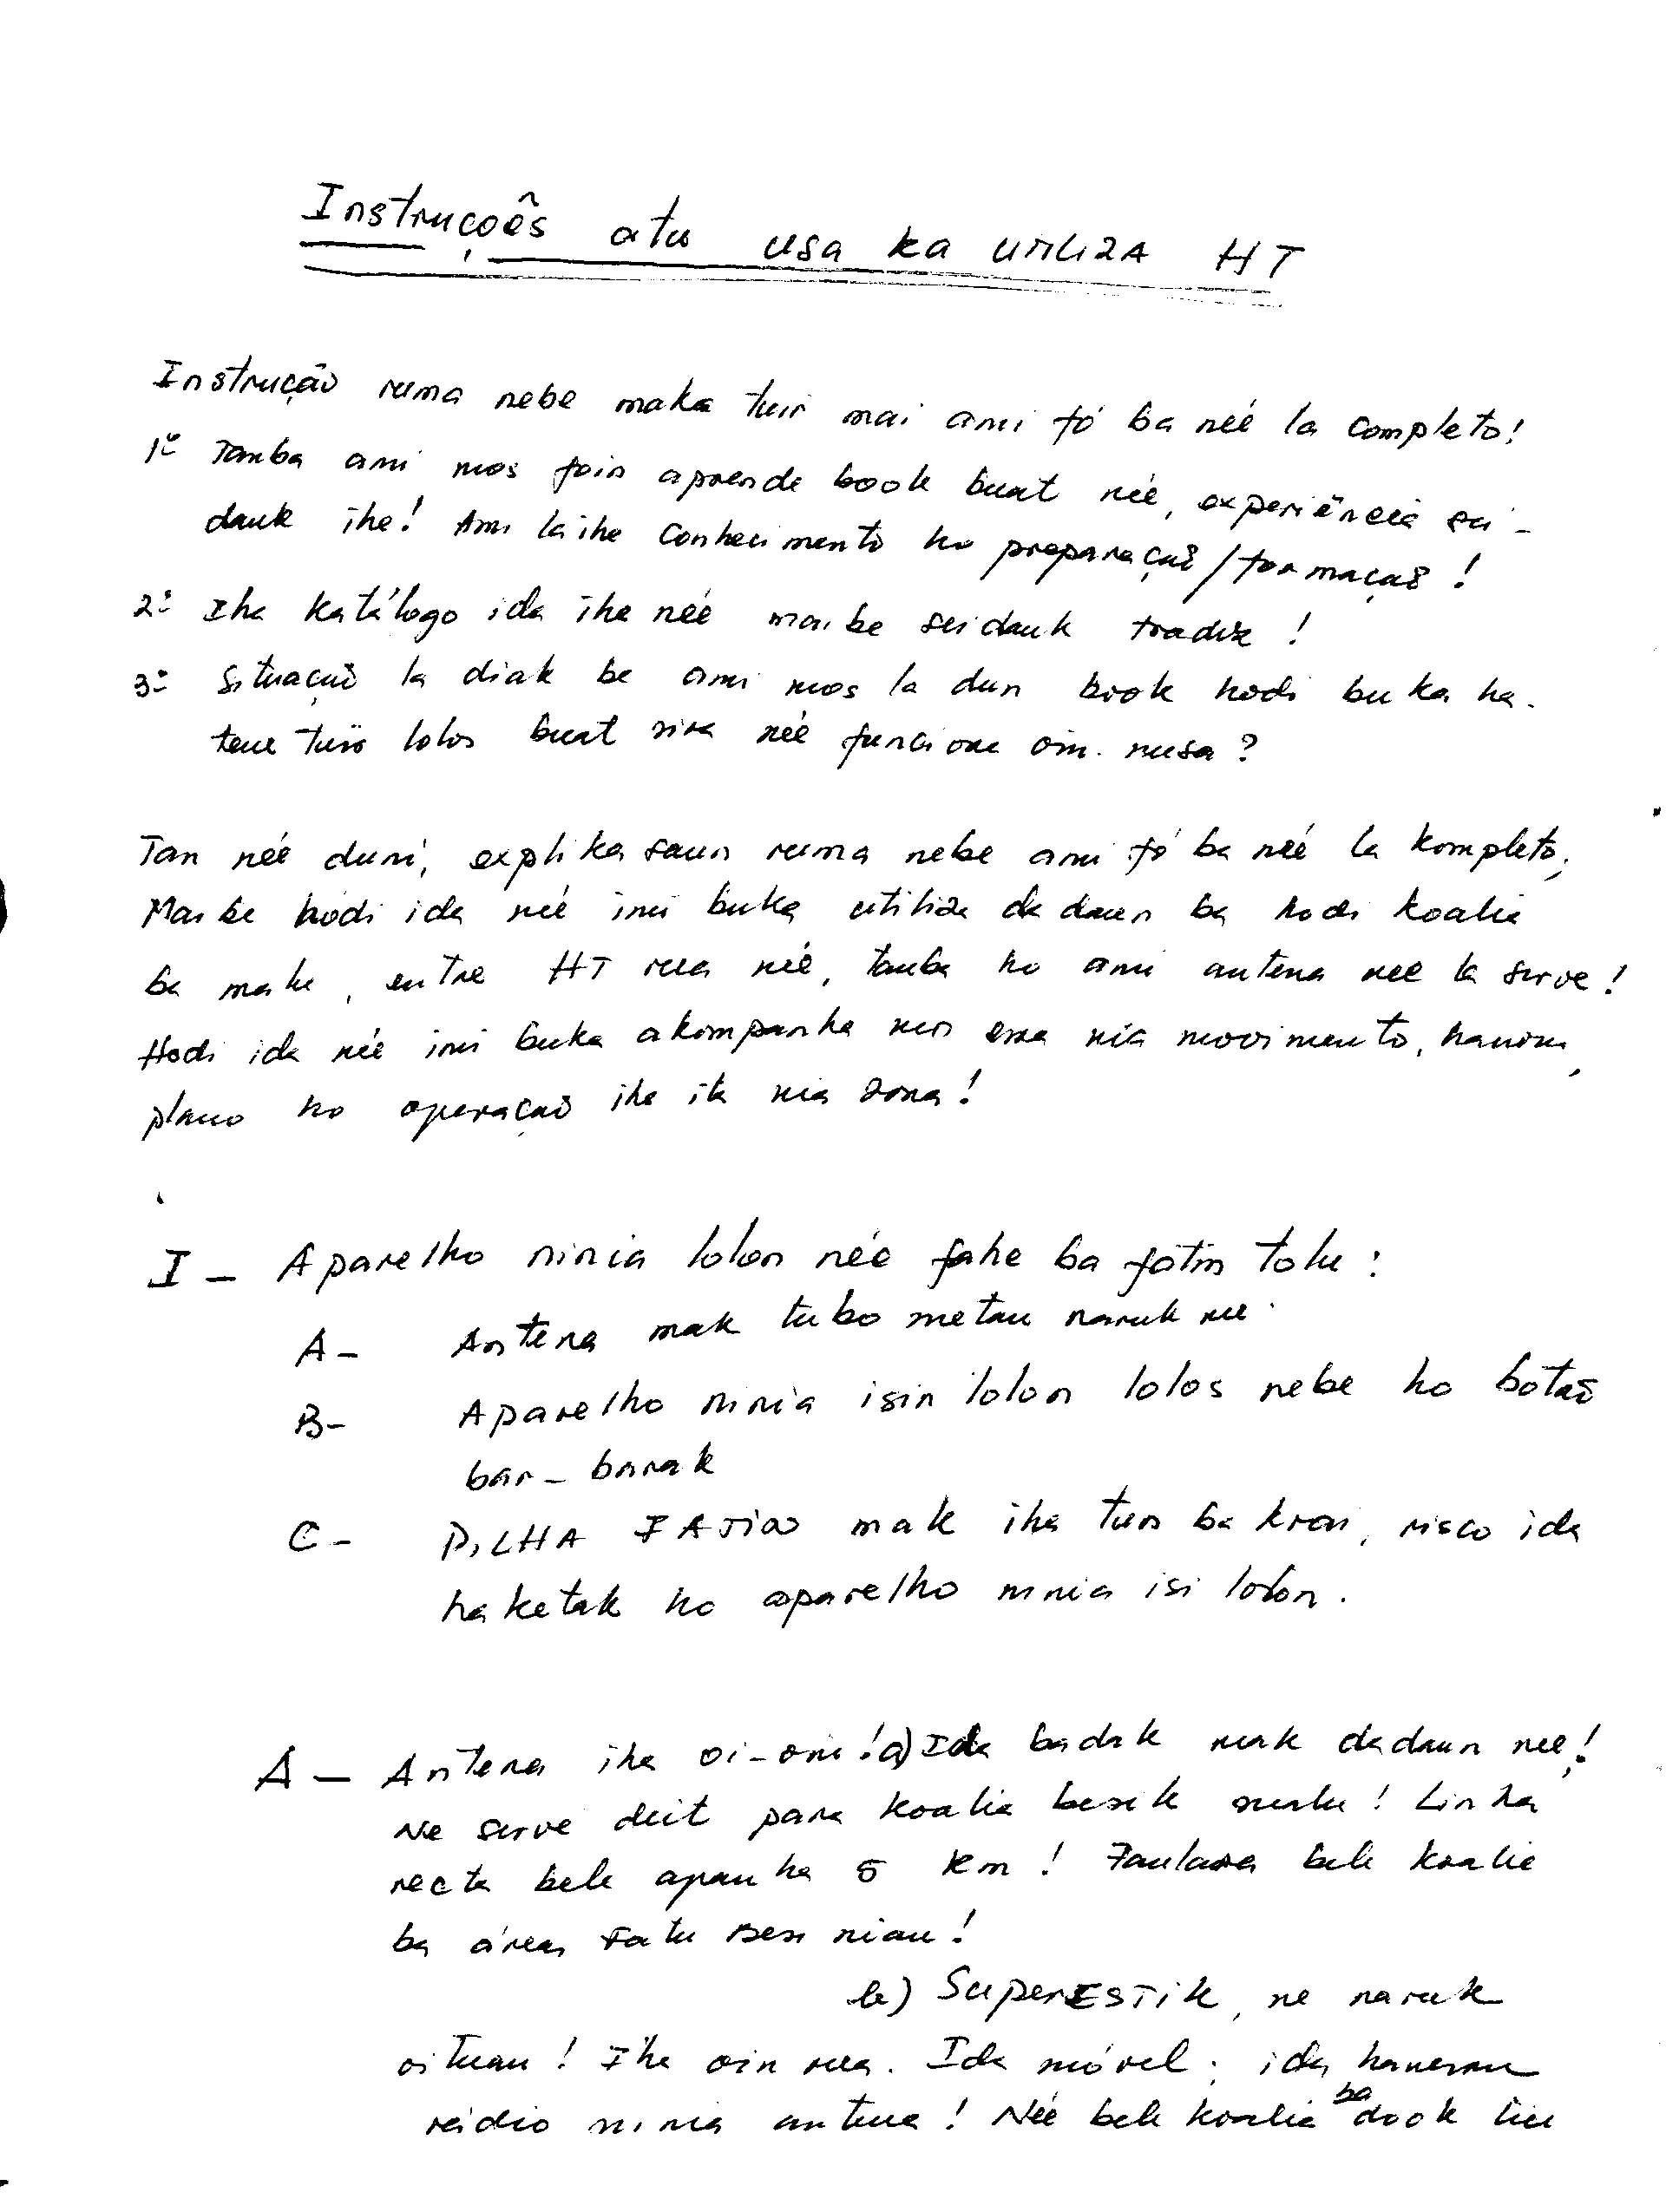 Instruçoẽs atu usa ka utiliza HT
Instrução ruma nebe maka tuir mai ami fó ba neé la completo!
1º Tamba ami mos foin aprende book buat neé, experiência sei-
dauk iha! Ami laiha conhecimento ho preparaçaõ/formaçaõ!
2º Iha katálogo ida iha neé maibe seidauk tradiz!
3º Situaçaõ la diak be ami mos la dun book hodi buka ha-
tene tuir lolos buat sira neé funciona oin-nusa?
Tan neé duni, explikasaun ruma nebe ami fó ba neé la kompleto,
Maibe hodi ida neé imi buka utiliza dadaun ba hodi koalia
ba malu, entre HT rua neé, tamba ho ami antena neé la serve!
Hodi ida neé imi buka akompanha mos ema nia movimento, hanoin,
plano ho operaçaõ iha ita nia zona!
I - Aparelho ninia lolon neé fahe ba fatin tolu:
A- Antena mak tubo metau naruk ne
B- Aparelho ninia isin lolon lolos nebe ho botaõ
bar-barak
C- PILHA FATIN mak iha tun ba kraik, risco ida
haketak ho aparelho ninia isi lolon.
A - Antena iha oi-oin! a) Ida badak mak dadaun neé!
Ne serve deit para koalia besik malu! Linha
recta bele apanha 5 Km! Faulara bele koalia
ba área Fatu Besi niau!
b) SuperESTik, ne naruk
oituan! Iha oin rua. Ida móvel; ida hanesan
rádio ninia antena! Neé bele koalia ba dook liu